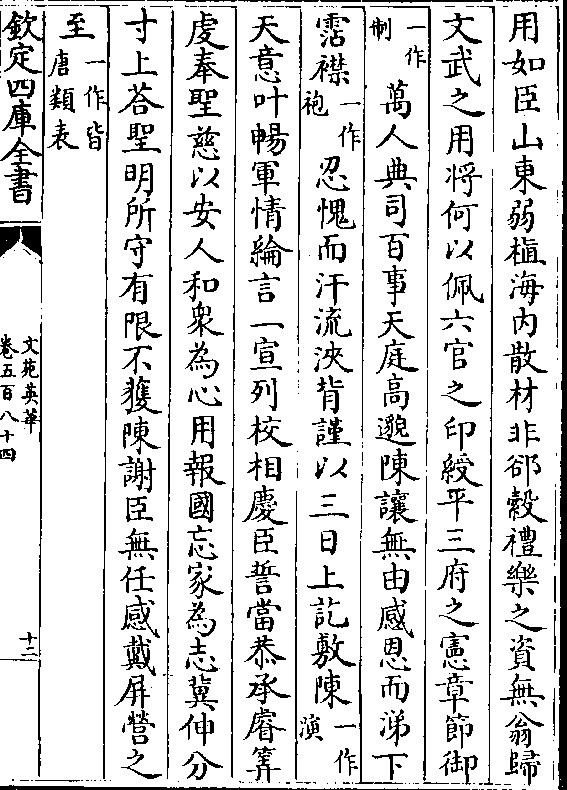 用如臣山東弱植海内散材非郤縠禮樂之資無翁歸
文武之用將何以佩六官之印綬平三府之憲章節御
一作制萬人典司百事天庭高邈陳讓無由感恩而涕下
霑襟一作袍忍愧而汗流浹背謹以三日上訖敷陳一作演
天意叶暢軍情綸言一宣列校相慶臣誓當恭承睿筭
虔奉聖慈以安人和衆為心用報國忘家為志冀伸分
寸上荅聖明所守有限不獲陳謝臣無任感戴屏營之
至一作皆唐類表
欽定四庫全書
文苑英華
卷五百八十四
十二